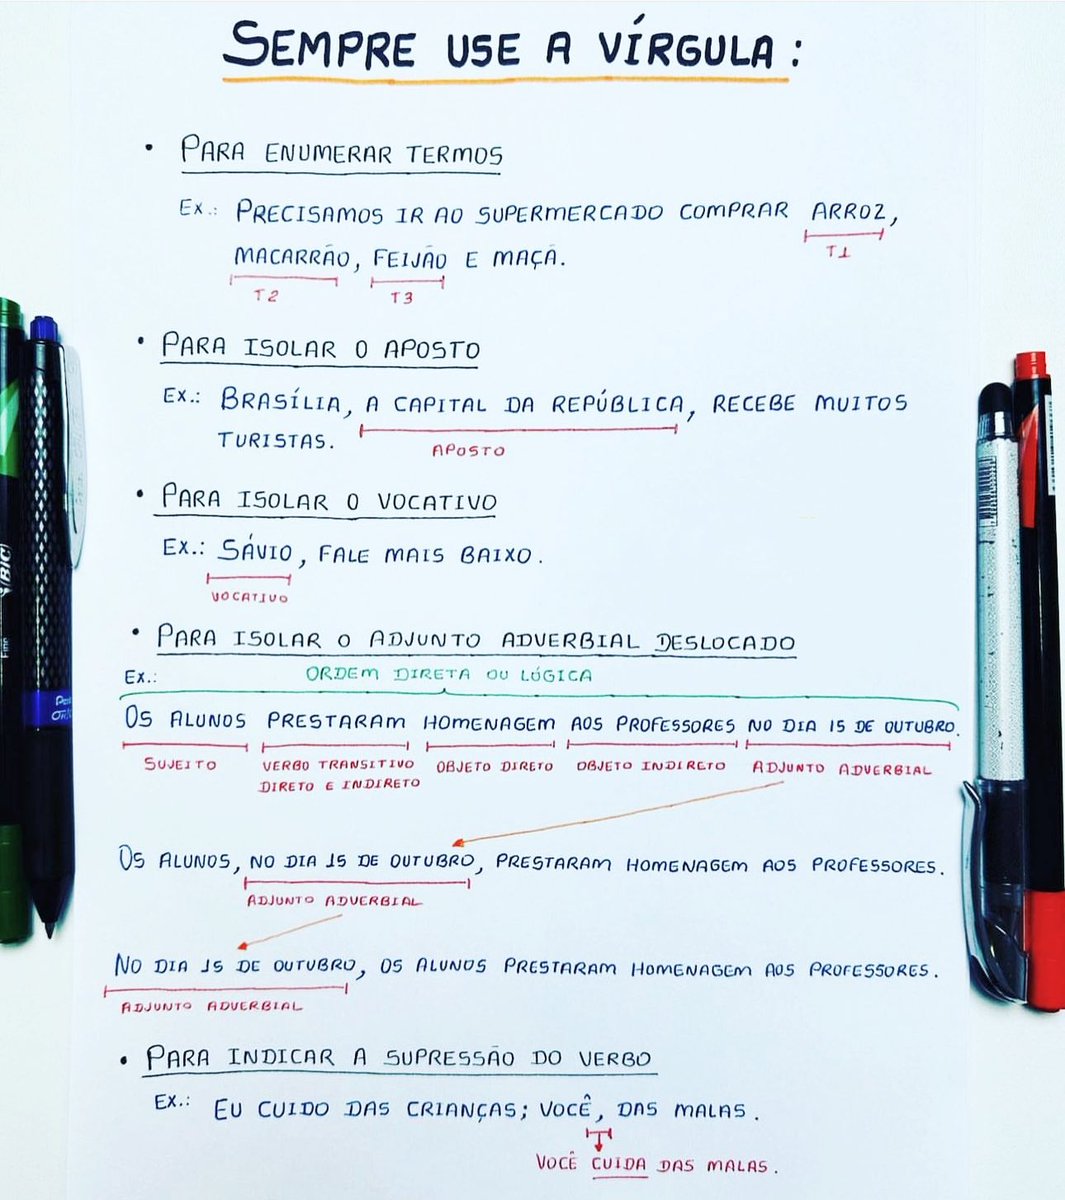 SEMPRE USE A VÍRGULA:
• PARA ENUMERAR TERMOS
Ex.: PRECISAMOS IR AO SUPERMERCADO COMPRAR ARROZ,
T1
MACARRÃO, FEIJÃO E MAÇÃ.
T2 T3
• PARA ISOLAR O APOSTO
Ex.: BRASÍLIA, A CAPITAL DA REPÚBLICA, RECEBE MUITOS
TURISTAS.
APOSTO
• PARA ISOLAR O VOCATIVO
Ex.: SÁVIO, FALE MAIS BAIXO.
VOCATIVO
• PARA ISOLAR O ADJUNTO ADVERBIAL DESLOCADO
Ex.: ORDEM DIRETA OU LÓGICA
OS ALUNOS PRESTARAM HOMENAGEM AOS PROFESSORES NO DIA 15 DE OUTUBRO.
SUJEITO VERBO TRANSITIVO OBJETO DIRETO OBJETO INDIRETO ADJUNTO ADVERBIAL
DIRETO E INDIRETO
OS ALUNOS, NO DIA 15 DE OUTUBRO, PRESTARAM HOMENAGEM AOS PROFESSORES.
ADJUNTO ADVERBIAL
NO DIA 15 DE OUTUBRO, OS ALUNOS PRESTARAM HOMENAGEM AOS PROFESSORES.
ADJUNTO ADVERBIAL
• PARA INDICAR A SUPRESSÃO DO VERBO
Ex.: EU CUIDO DAS CRIANÇAS; VOCÊ, DAS MALAS.
VOCÊ CUIDA DAS MALAS.
BIC